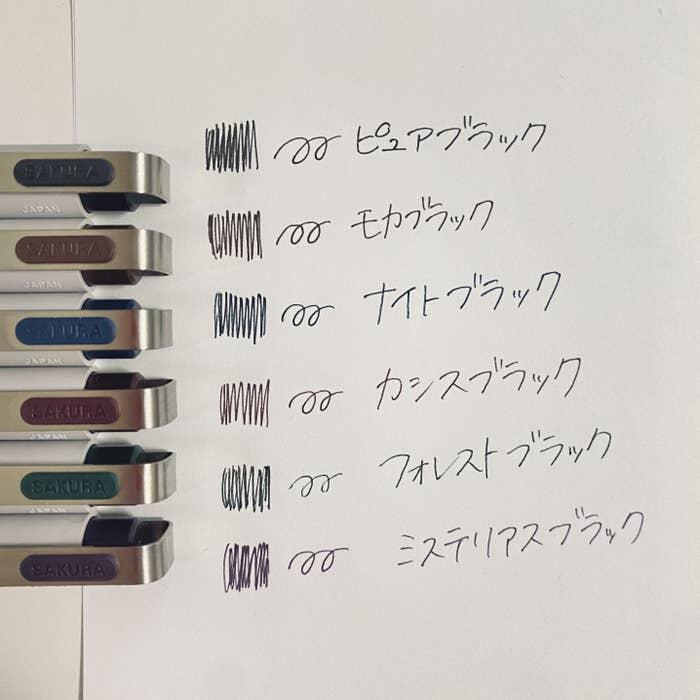 ピュアブラック
SAKURA
JAPAN
モカブラック
SAKURA
JAPAN
ナイトブラック
SAKURA
JAPAN
カシスブラック
SAKURA
JAPAN
フォレストブラック
SAKURA
ミステリアスブラック
SAKURA